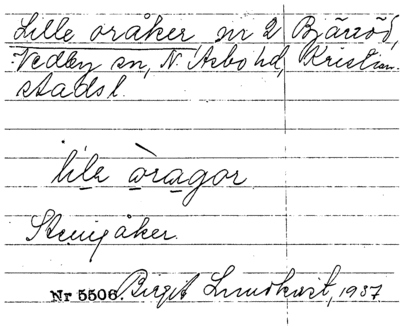 Lille oråker nr 2 Bjärröd,
Vedby sn, N. Åsbo hd, Kristian-
stads l.
lile òragor
Stenig åker.
Nr 5506. Birgit Lundkvist, 1937